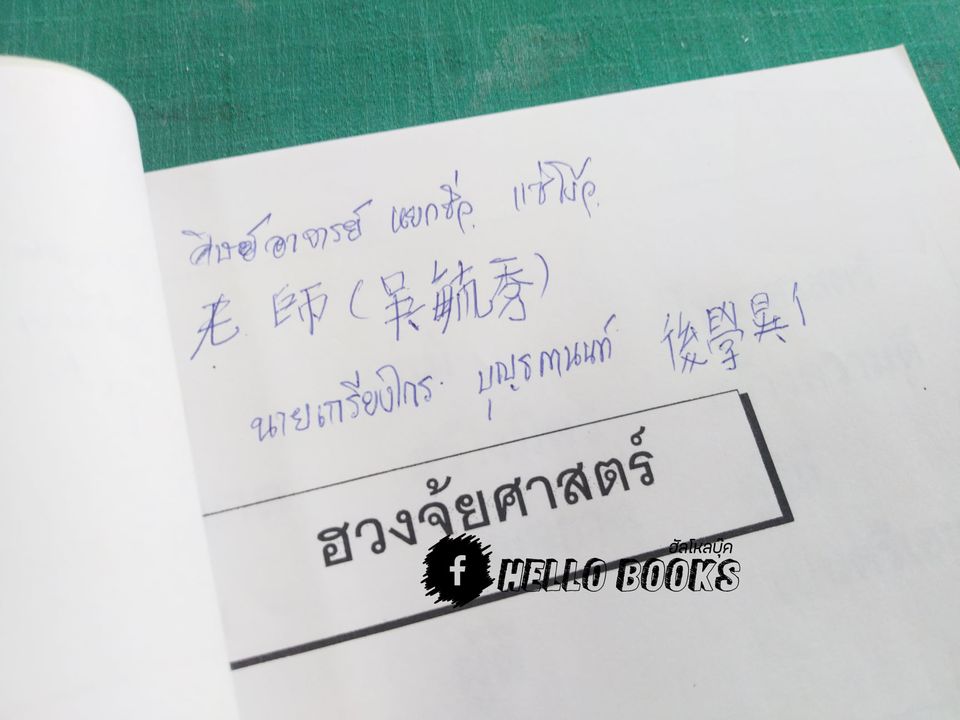 ศิษย์อาจารย์ หยกซิ่ว แซ่โง้ว
老師(吳毓秀)
นายเกรียงไกร บุญธกานนท์ 後學異
ฮวงจุ้ยศาสตร์
ฮัลโหลบุ๊ค
f HELLO BOOKS